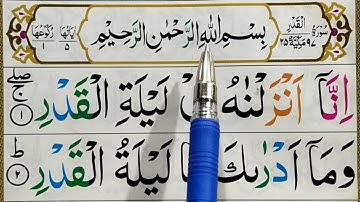 سُوْرَةُ الْقَدْرِ ٩٧ مَكِّيَّةٌ ٢٥
بِسْمِ اللّٰهِ الرَّحْمٰنِ الرَّحِيْمِ
اٰيَاتُهَا ٥ رُكُوْعُهَا ١
اِنَّاۤ اَنْزَلْنٰهُ لَيْلَةِ الْقَدْرِ ۖ ١
وَمَاۤ اَدْرٰىكَ لَيْلَةُ الْقَدْرِ ؕ ٢